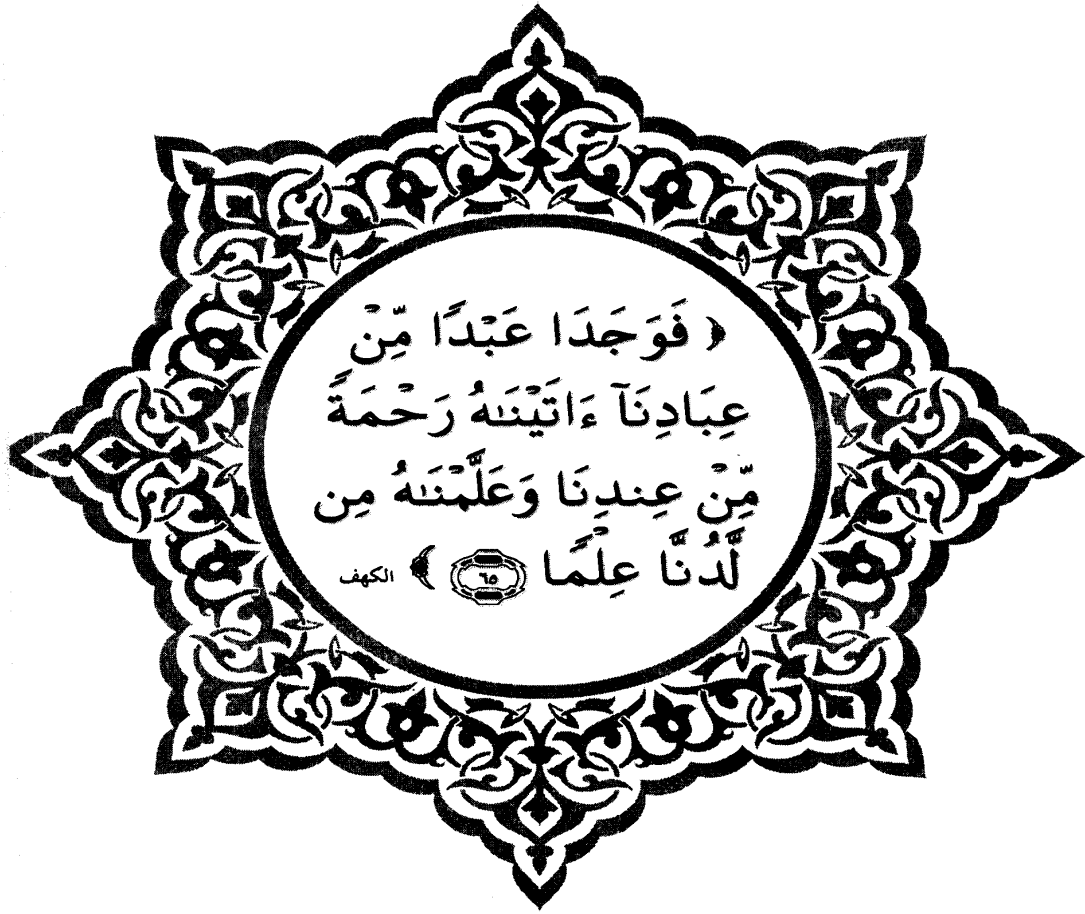 ﴿ فَوَجَدَا عَبْدًا مِّنْ
عِبَادِنَآ ءَاتَيْنَـٰهُ رَحْمَةً
مِّنْ عِندِنَا وَعَلَّمْنَـٰهُ مِن
لَّدُنَّا عِلْمًا ٦٥ ﴾ الكهف